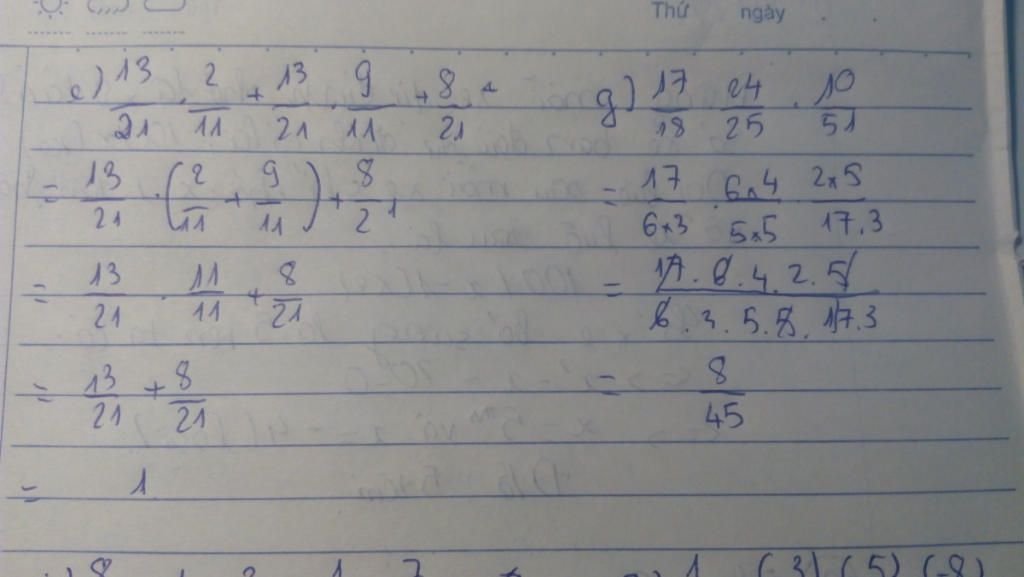 Thứ ngày . .
e) 13/21 . 2/11 + 13/21 . 9/11 + 8/21
= 13/21 . (2/11 + 9/11) + 8/21
= 13/21 . 11/11 + 8/21
= 13/21 + 8/21
= 1
g) 17/18 . 24/25 . 10/51
= 17/6x3 . 6x4/5x5 . 2x5/17.3
= 17 . 6 . 4 . 2 . 5/6 . 3 . 5 . 5 . 17 . 3
= 8/45